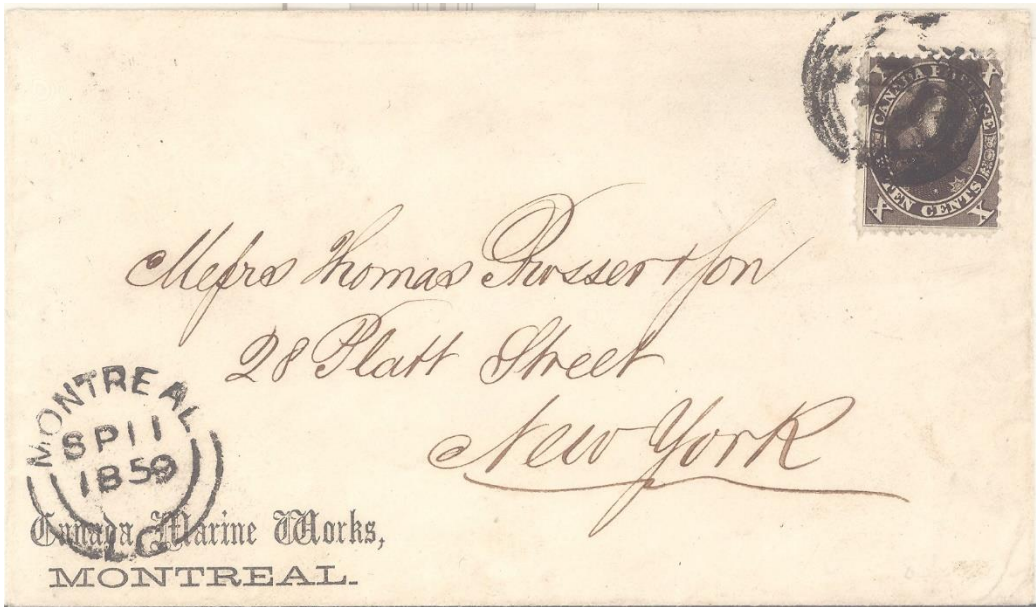 X X
CANADA POSTAGE
TEN CENTS
X X
Messrs Thomas Prosser & Son
28 Platt Street
New York
MONTREAL
SP 11
1859
Canada Marine Works,
MONTREAL.